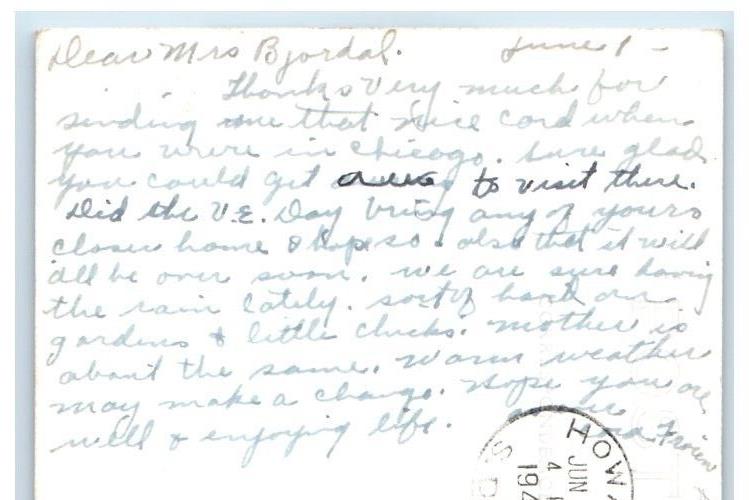 Dear Mrs Bjordal. June 1 -
Thanks Very much for
sending me that nice card when
you were in Chicago. Sure glad
you could get away to visit there.
Did the V.E. Day bring any of yours
closer home I hope so. also that it will
all be over soon. we are sure having
the rain lately. sort of hard on
gardens & little chicks. Mother is
about the same. Warm weather
may make a change. Hope you are
well & enjoying life.
HOWA
JUN
4
194
S.D.